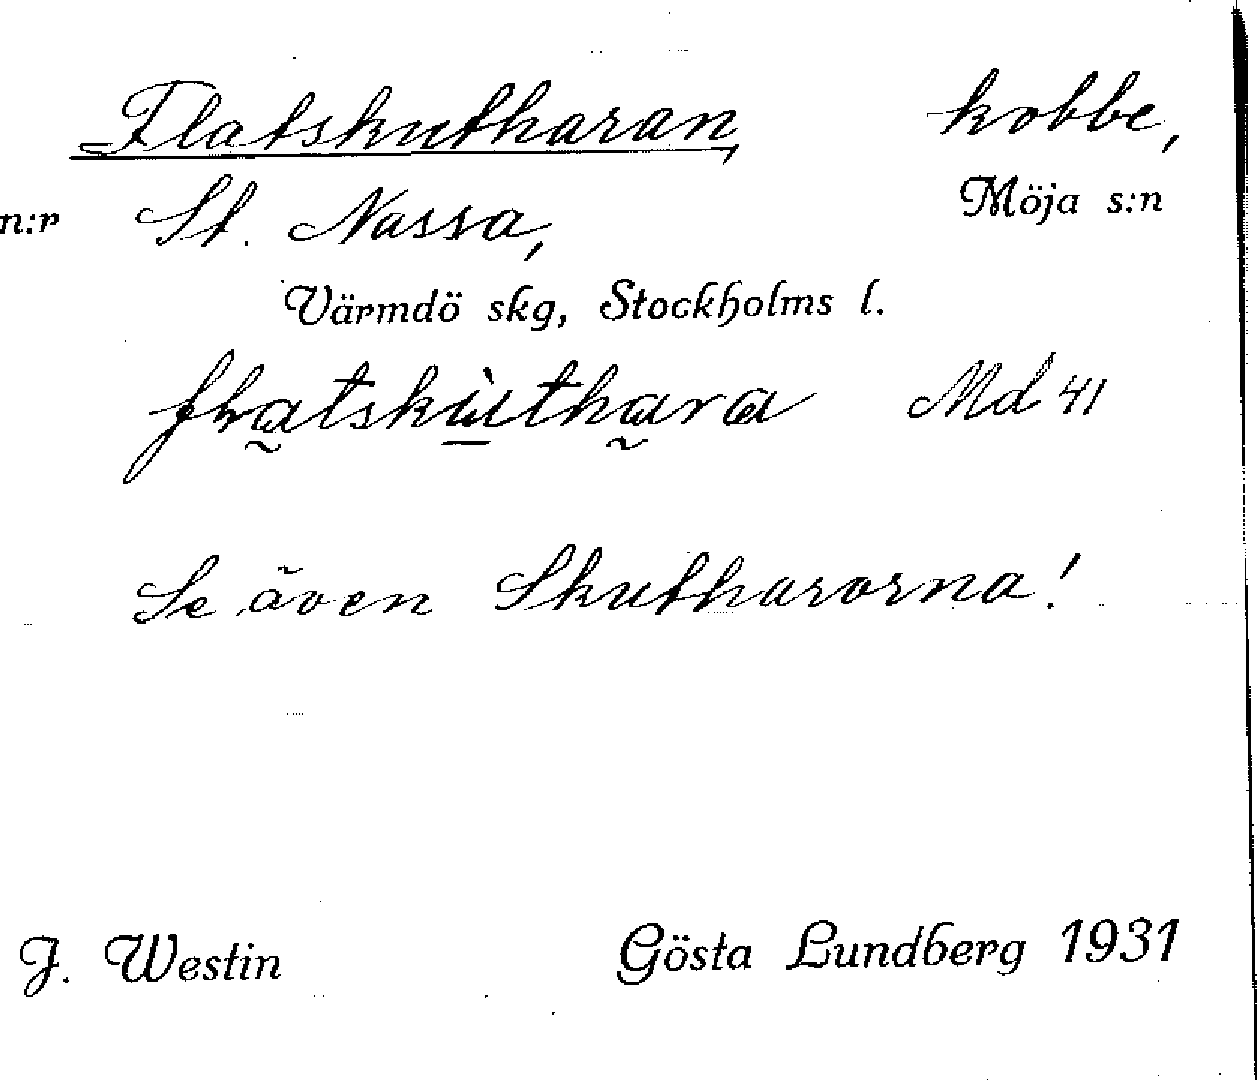 Flatskutharan, kobbe,
n:r St. Nassa, Möja s:n
Värmdö skg, Stockholms l.
Md 41
Se även Skuthararna!
J. Westin Gösta Lundberg 1931